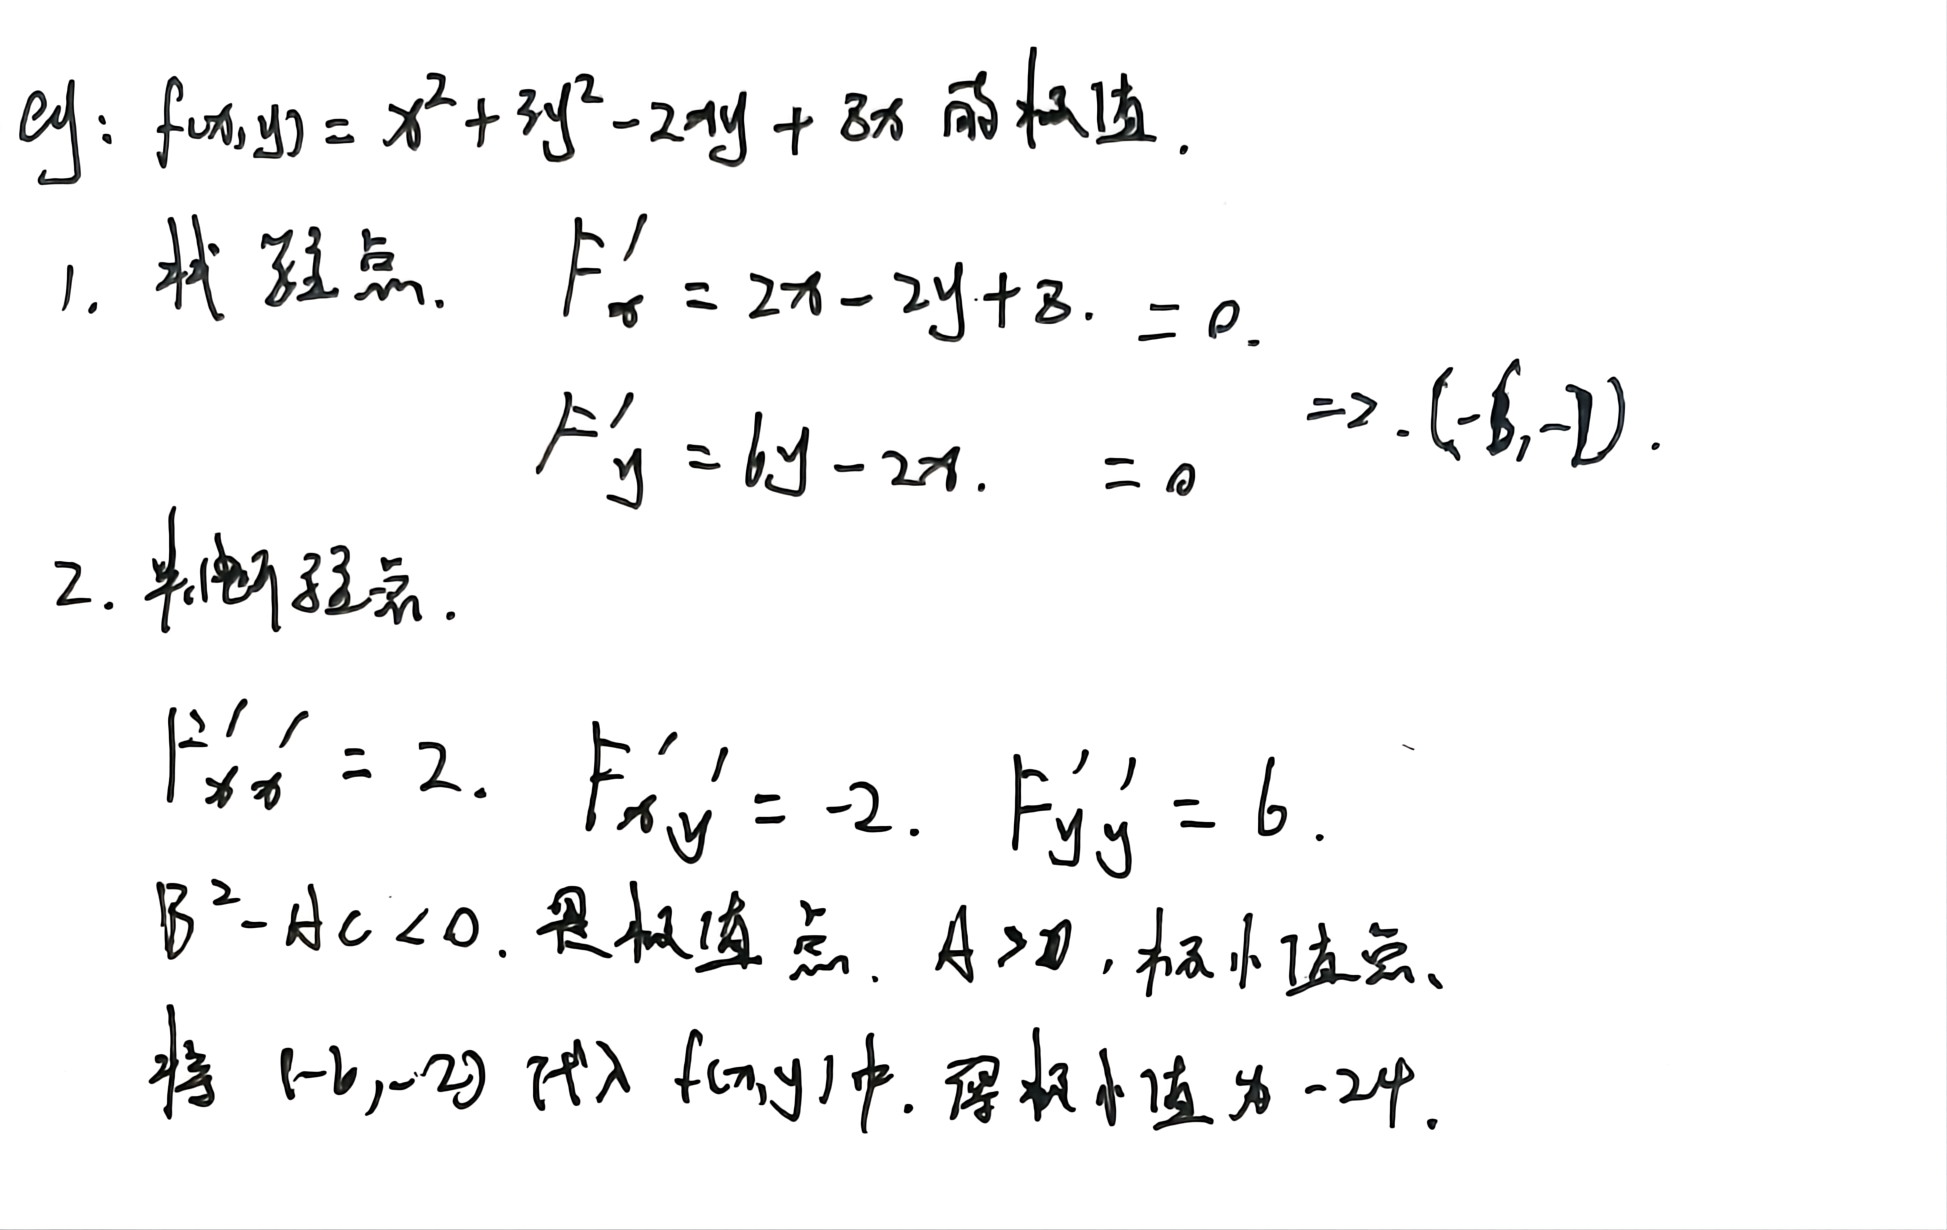 eg: f(x,y) = x² + 3y² - 2xy + 8x 的极值.
1. 找驻点. F'x = 2x - 2y + 8. = 0.
F'y = 6y - 2x. = 0 => . (-6, -2).
2. 判断驻点.
F''xx = 2. F''xy = -2. F''yy = 6.
B² - AC < 0. 是极值点. A > 0, 极小值点、
将 (-6, -2) 代入 f(x,y) 中. 得极小值为 -24.